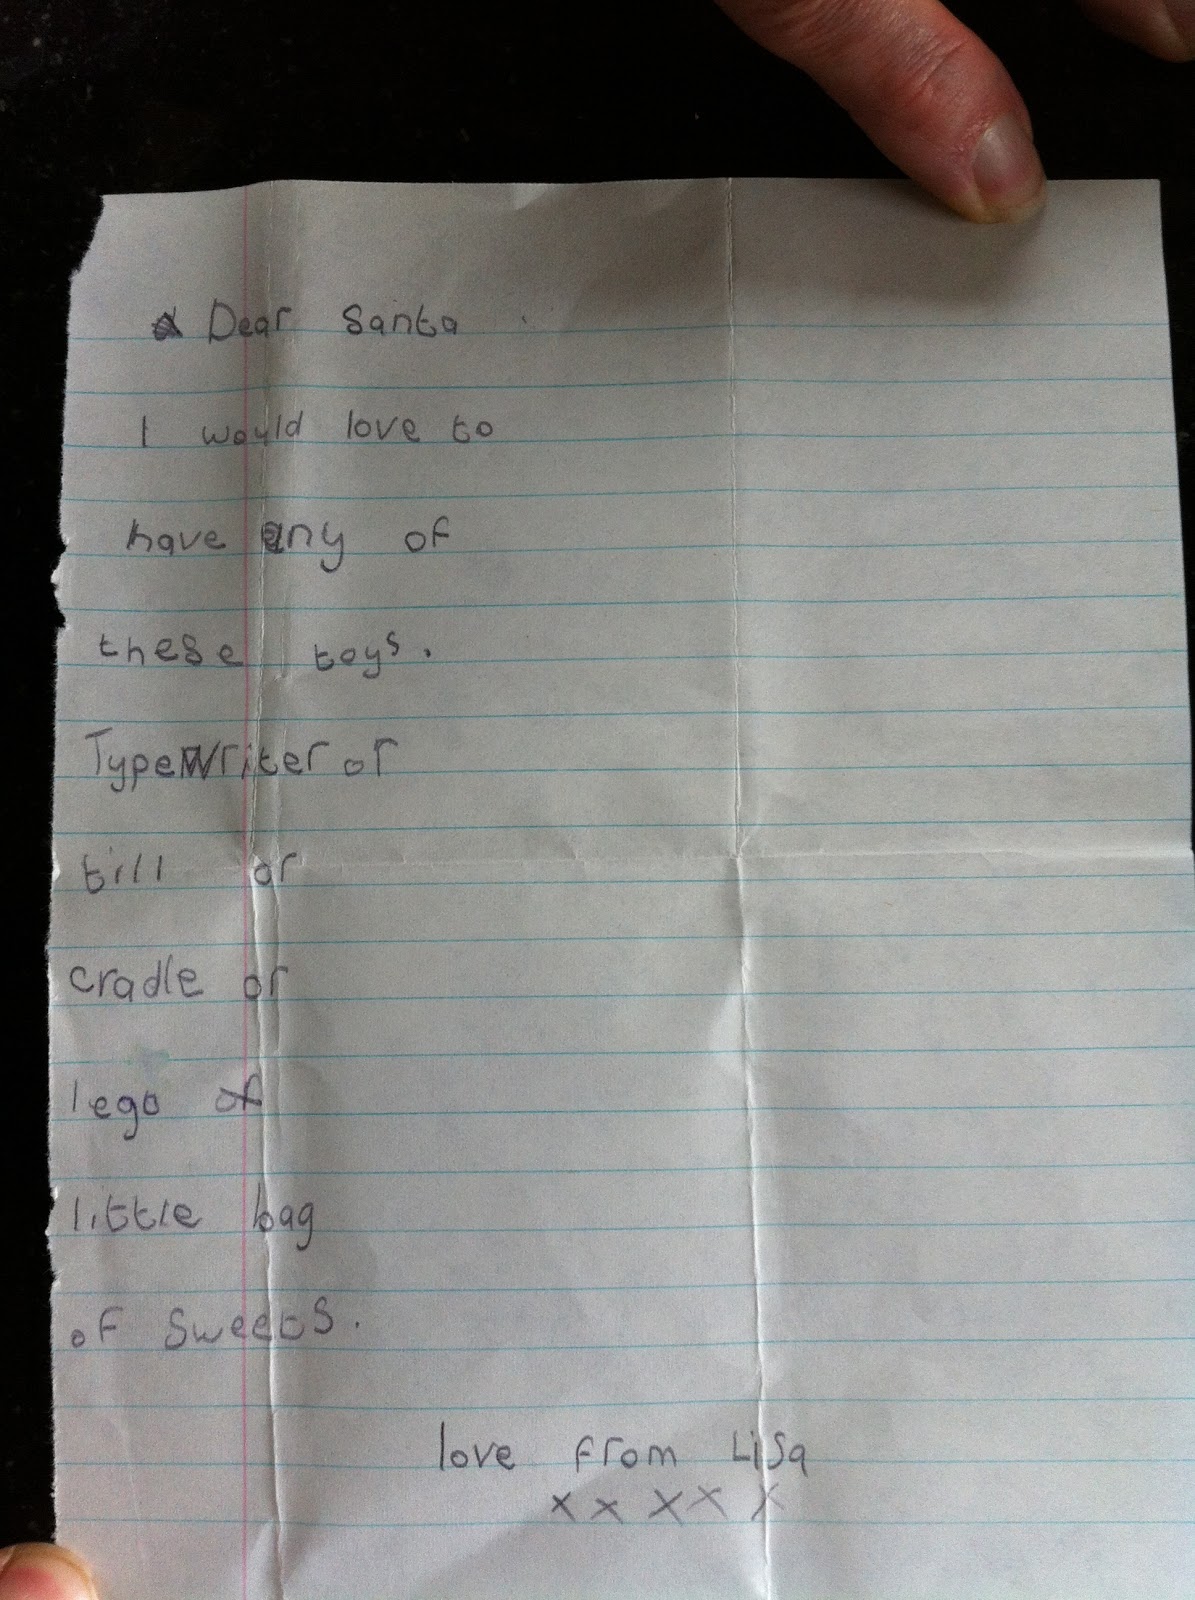 Dear Santa
I would love to
have any of
these toys.
Typewriter or
till or
cradle or
lego of
little bag
of sweets.
love from Lisa
x x x x x